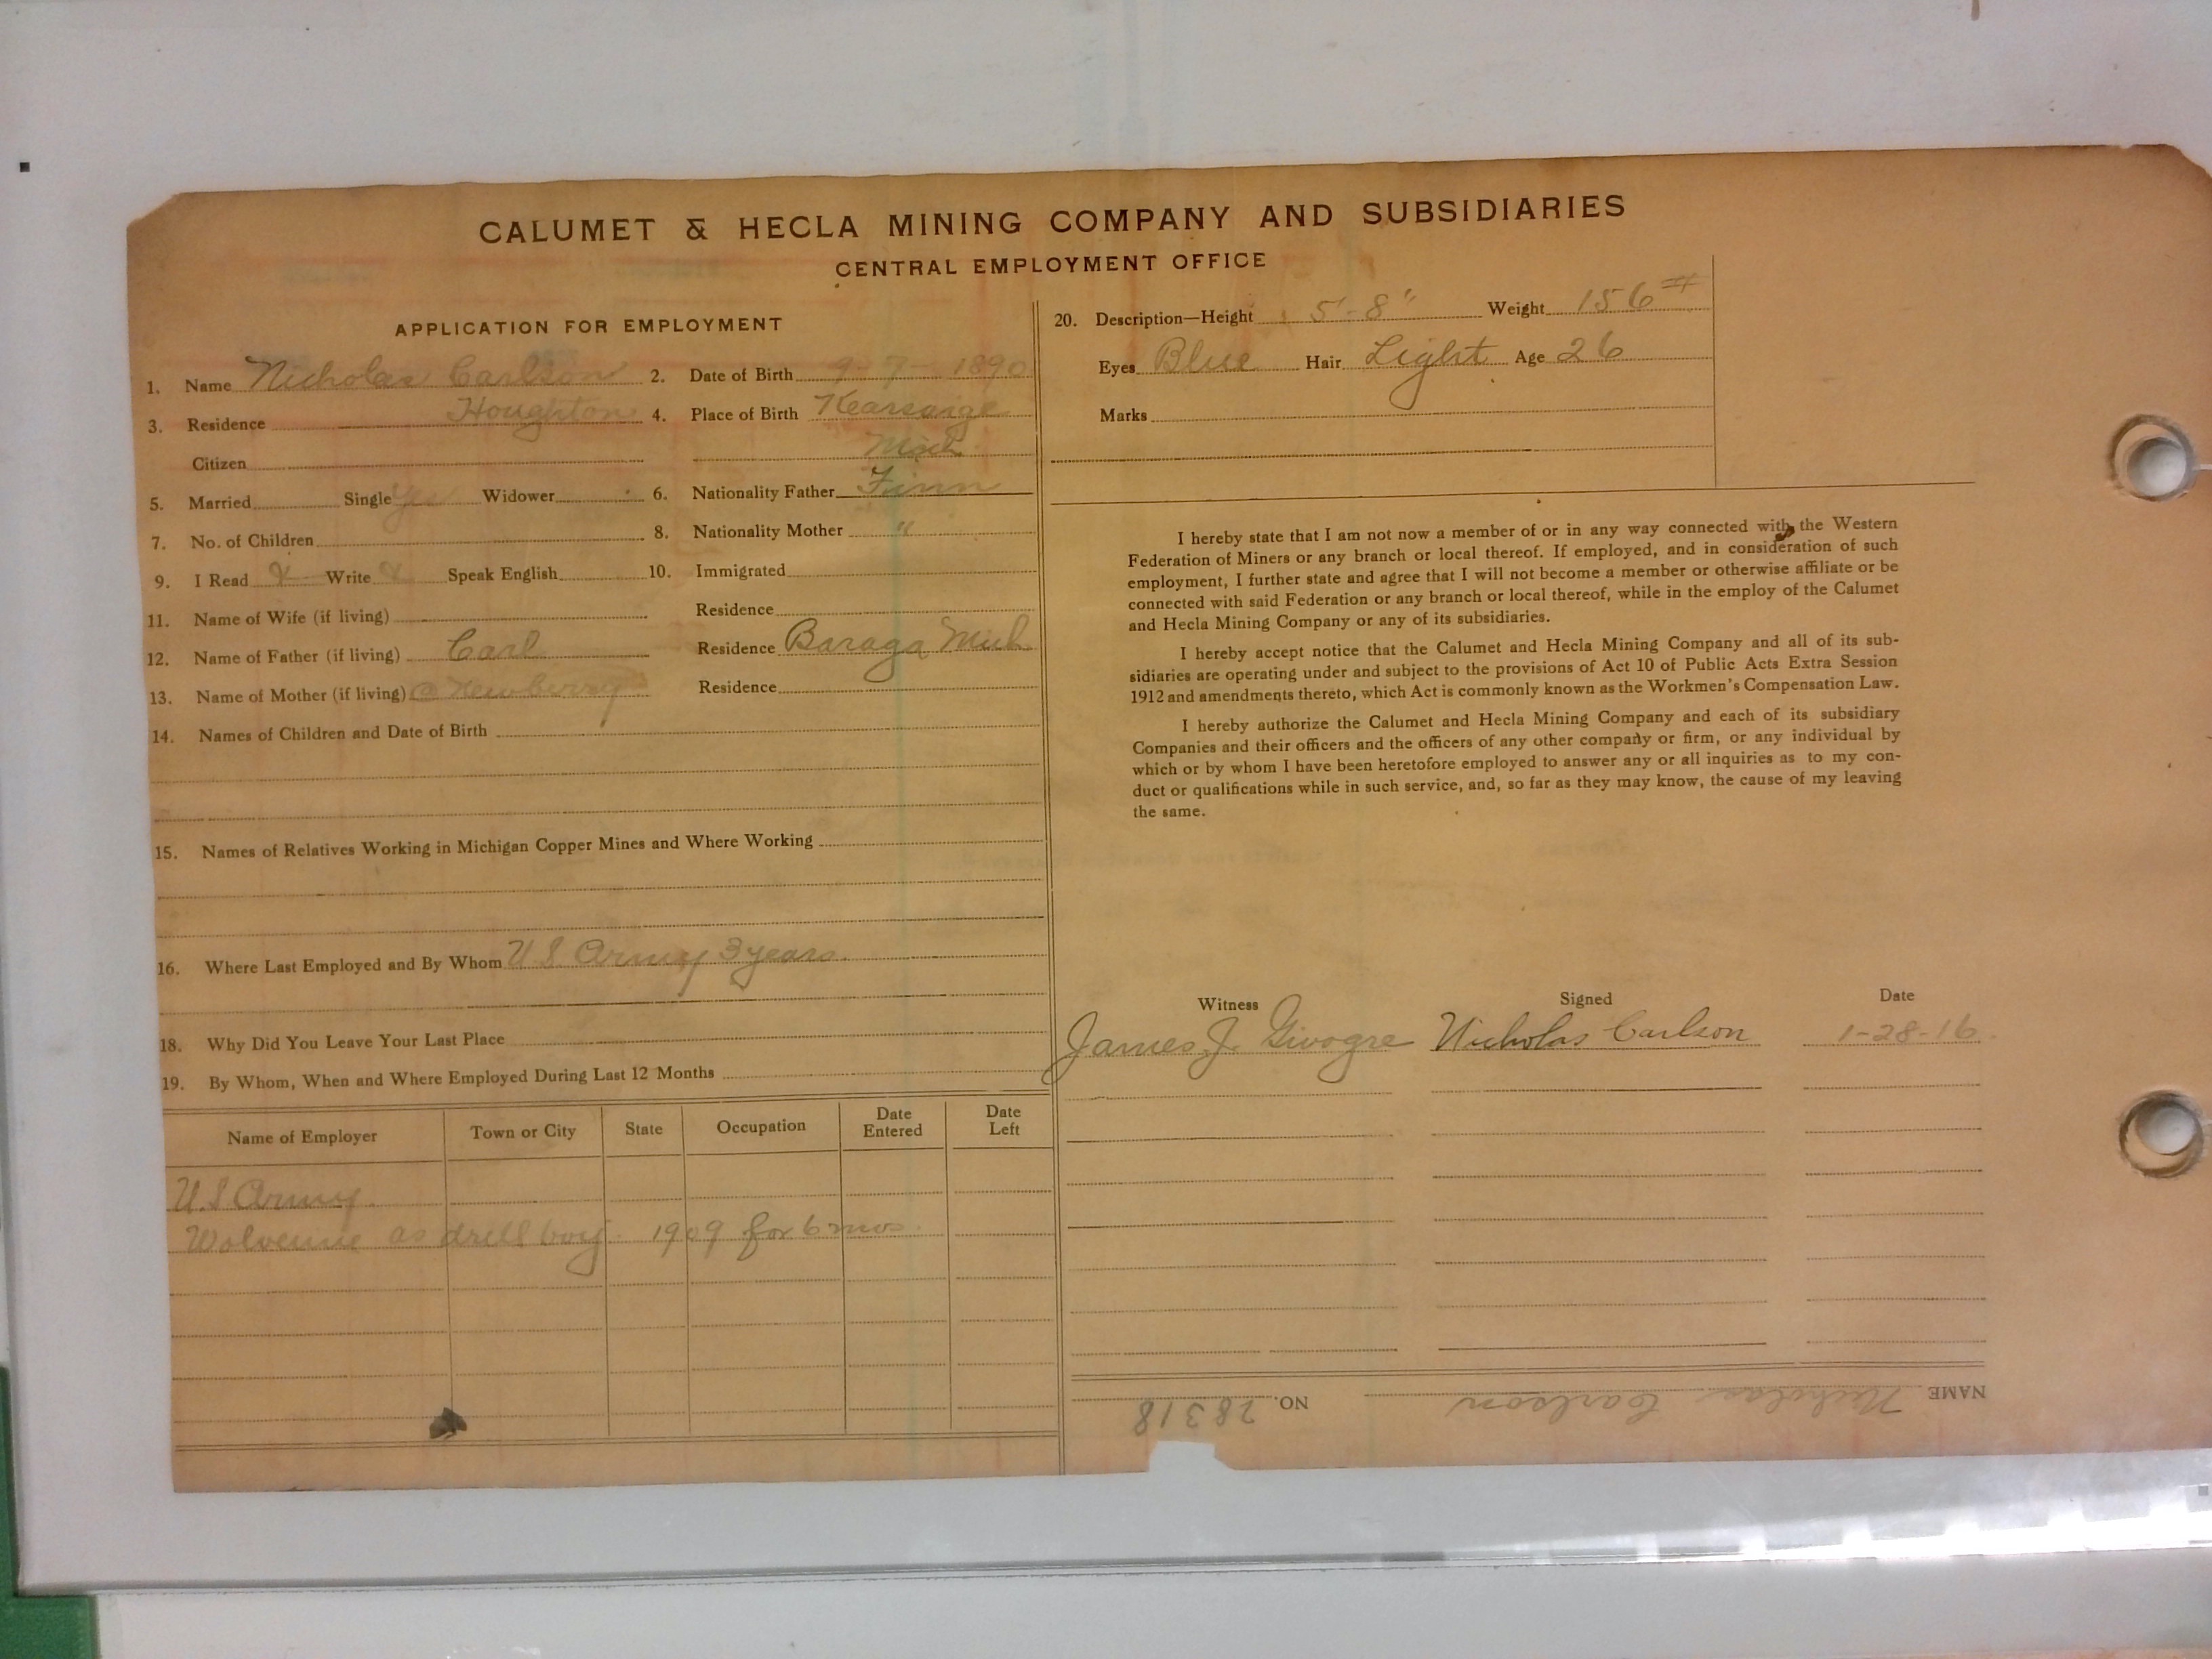 CALUMET & HECLA MINING COMPANY AND SUBSIDIARIES
CENTRAL EMPLOYMENT OFFICE
APPLICATION FOR EMPLOYMENT
1. Name Nicholas Carlson 2. Date of Birth 9-7-1890
3. Residence Houghton 4. Place of Birth Kearsarge
Citizen Mich
5. Married Single Yes Widower 6. Nationality Father Finn
7. No. of Children 8. Nationality Mother "
9. I Read X Write X Speak English 10. Immigrated
11. Name of Wife (if living) Residence
12. Name of Father (if living) Carl Residence Baraga Mich
13. Name of Mother (if living) @ Newberry Residence
14. Names of Children and Date of Birth
15. Names of Relatives Working in Michigan Copper Mines and Where Working
16. Where Last Employed and By Whom U S Army 3 years.
18. Why Did You Leave Your Last Place
19. By Whom, When and Where Employed During Last 12 Months
Name of Employer Town or City State Occupation Date Entered Date Left
U.S Army.
Wolverine as drill boy. 1909 for 6 mos.
20. Description—Height 5'-8" Weight 156 #
Eyes Blue Hair Light Age 26
Marks
I hereby state that I am not now a member of or in any way connected with the Western
Federation of Miners or any branch or local thereof. If employed, and in consideration of such
employment, I further state and agree that I will not become a member or otherwise affiliate or be
connected with said Federation or any branch or local thereof, while in the employ of the Calumet
and Hecla Mining Company or any of its subsidiaries.
I hereby accept notice that the Calumet and Hecla Mining Company and all of its sub-
sidiaries are operating under and subject to the provisions of Act 10 of Public Acts Extra Session
1912 and amendments thereto, which Act is commonly known as the Workmen's Compensation Law.
I hereby authorize the Calumet and Hecla Mining Company and each of its subsidiary
Companies and their officers and the officers of any other company or firm, or any individual by
which or by whom I have been heretofore employed to answer any or all inquiries as to my con-
duct or qualifications while in such service, and, so far as they may know, the cause of my leaving
the same.
Witness Signed Date
James J. Givogre Nicholas Carlson 1-28-16
NAME Nicholas Carlson NO. 28318